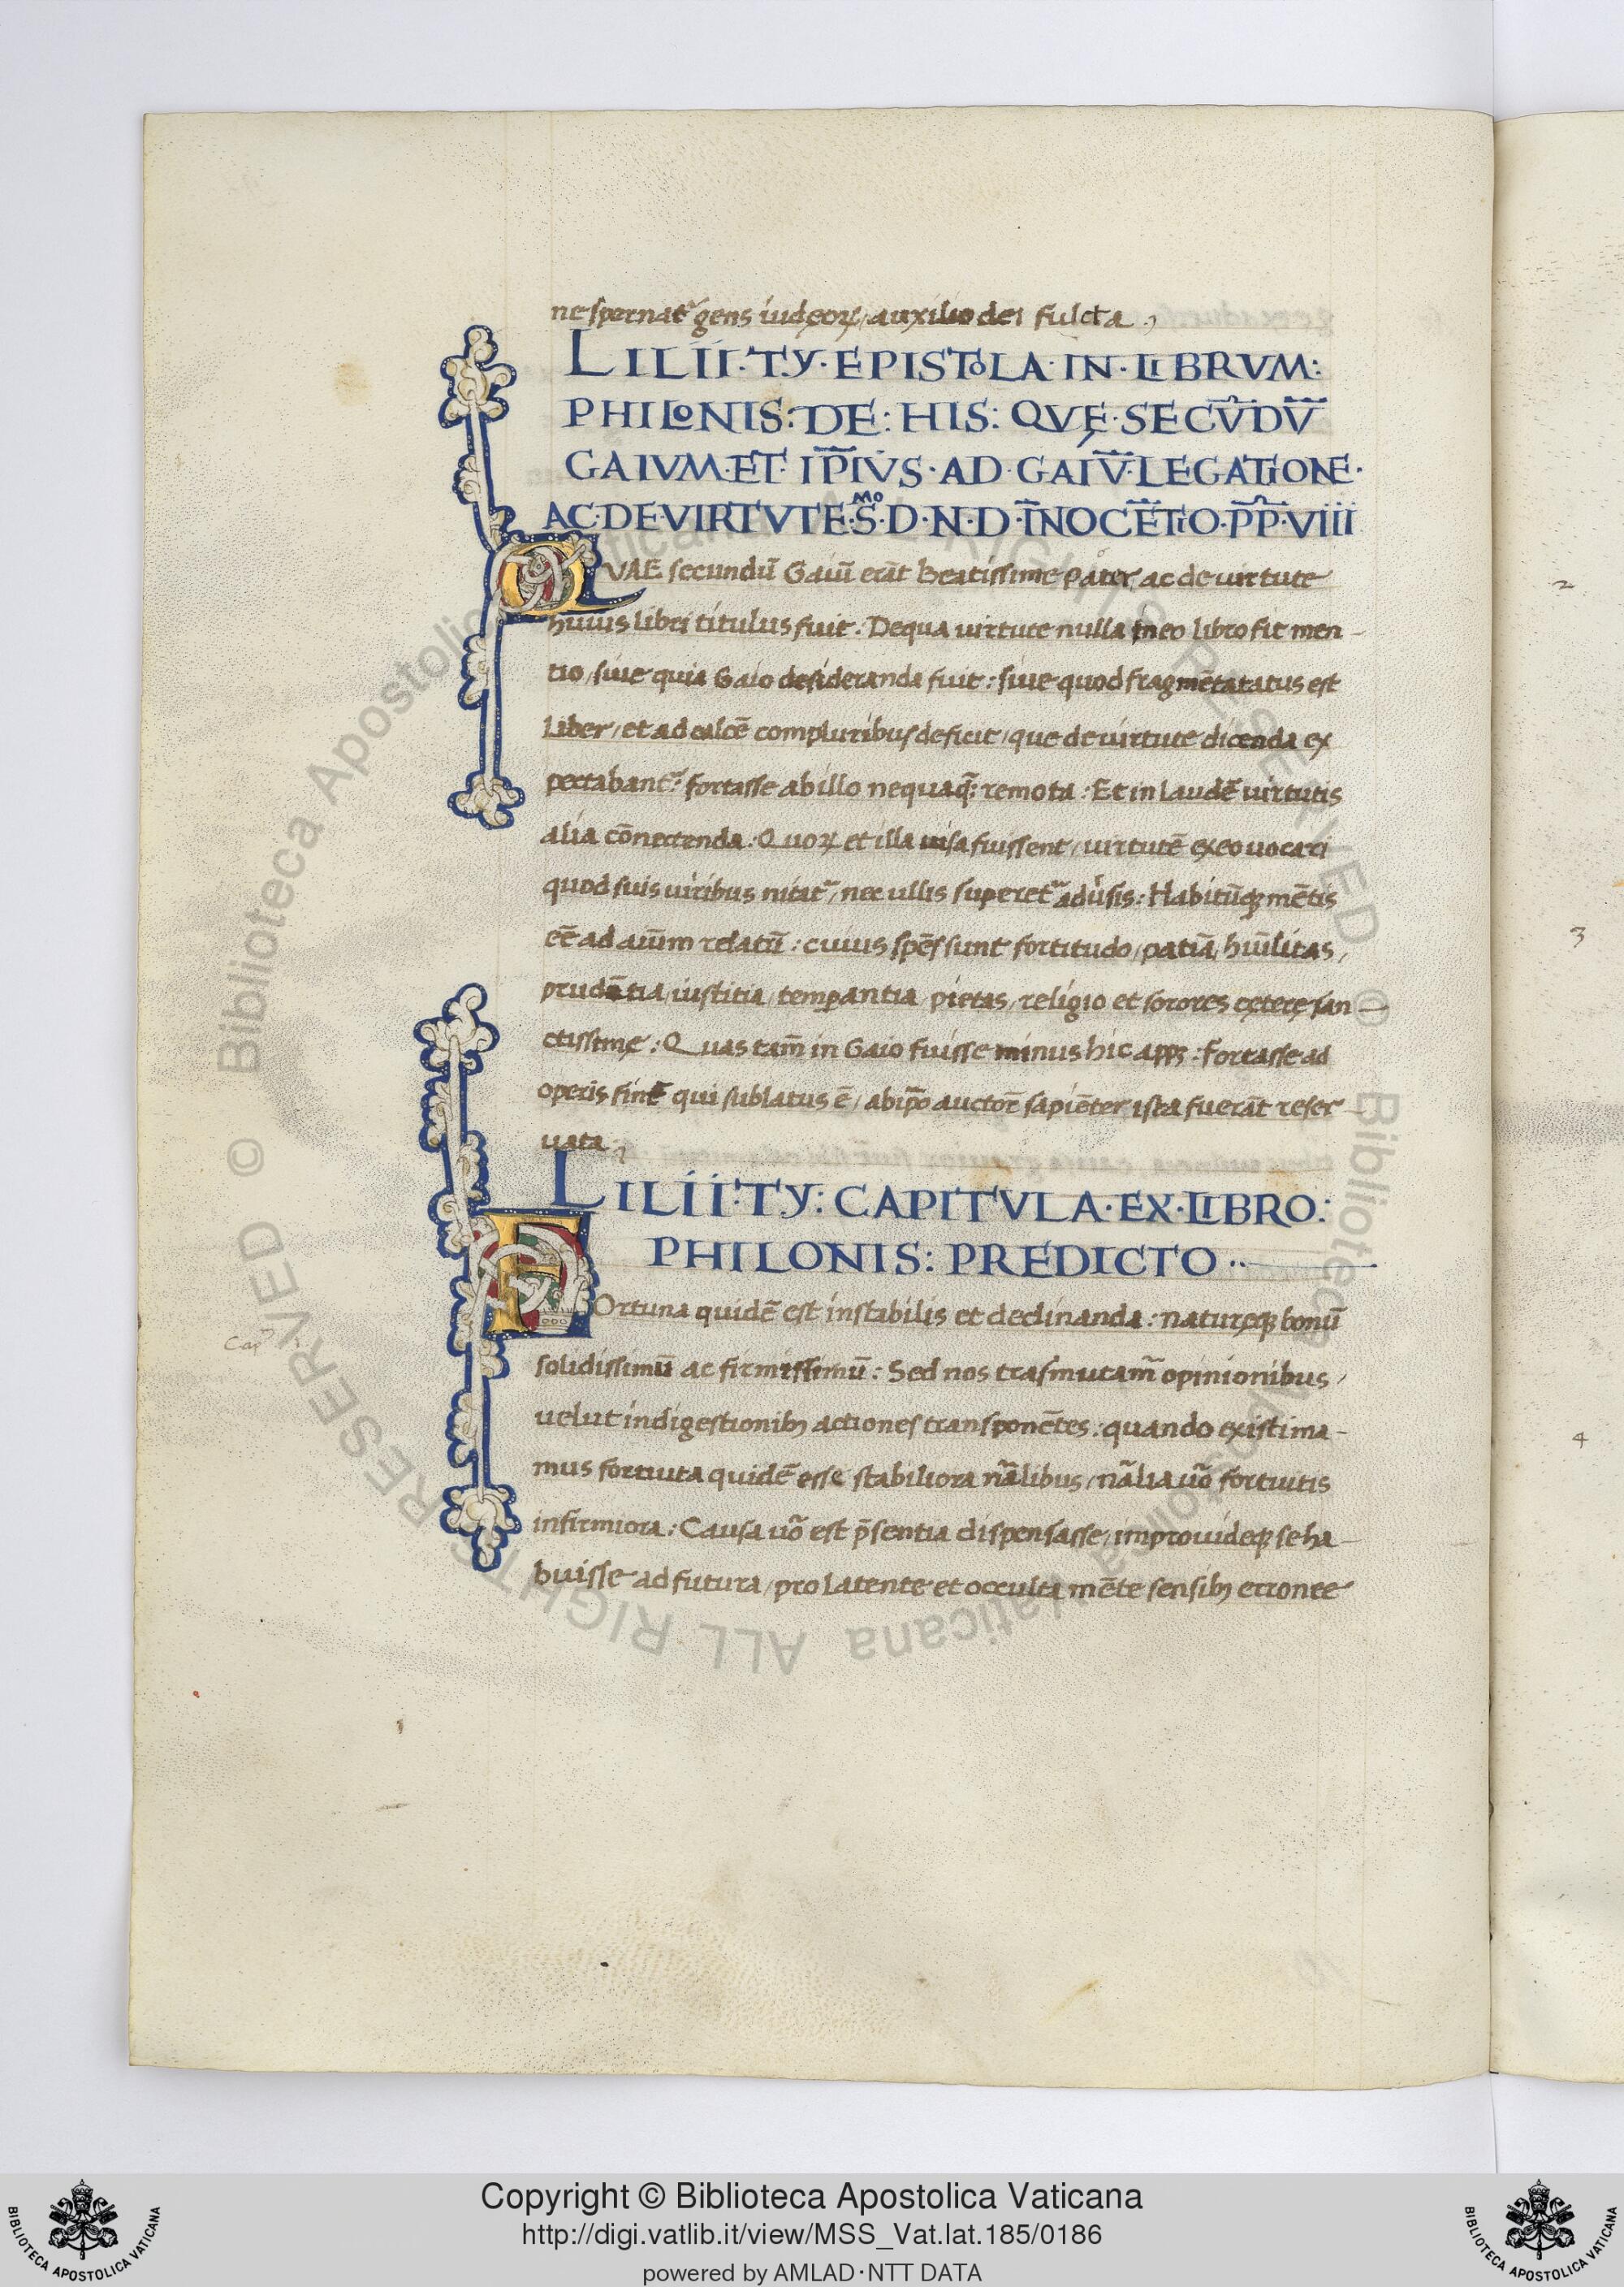 ne spernat᷑ gens iudęoꝝ / auxilio dei fulcta .,
LILII·TY·EPISTOLA·IN·LIBRVM:
PHILONIS:DE:HIS:QVĘ·SECV̄DV̄
GAIVM·ET·IP̄IVS·AD·GAIV̄·LEGATIONE·
AC·DE·VIRTVTE·S·MO·D·N·D·ĪNOCĒTIO·P̄P̄·VIII
QVAE secundū Gaiū erāt beatissime pater, ac de virtute
huius libri titulus fuit. De qua virtute nulla in eo libro fit men-
tio / siue quia Gaio desideranda fuit : siue quod fragmētatatus est
liber / et ad calcē compluribus deficit / que de uirtute dicenda ex
pectabant᷑ : fortasse ab illo nequaq̄ȝ remota : Et in laudē virtutis
alia cōnectenda : Quoꝝ et illa uisa fuissent / virtutē ex eo uocari
quod suis uiribus nitat᷑ / nec ullis superet᷑ adūsis : Habitūqȝ mētis
eē ad aīum relatū : cuius spēs sunt fortitudo / patiā / huīlitas /
prudētia / iustitia / temperantia / pietas / religio et sorores cętere san-
ctissimę : Quas tam̄ in Gaio fuisse minus hic apꝑȝ : fortasse ad
operis finē qui sublatus ē / ab ip̄o auctore sapiēter ista fuerāt reser-
uata .,
LILII:TY:CAPITVLA·EX·LIBRO:
PHILONIS: PREDICTO··
FOrtuna quidē est instabilis et declinanda : naturęqȝ bonū
solidissimū ac firmissimū : Sed nos trasmutam᷑ opinionibus /
uelut in digestionibȝ actiones transponētes : quando existima-
mus fortuita quidē esse stabiliora nālibus / nālia uō fortuitis
infirmiora : Causa uō est p̄sentia dispensasse / improuideqȝ se ha-
buisse ad futura / pro latente et occulta mēte sensibȝ erronee
Cap̄ 1.
2
3
4
© Biblioteca Apostolica Vaticana ALL RIGHTS RESERVED
© Biblioteca Apostolica Vaticana ALL RIGHTS RESERVED
Copyright © Biblioteca Apostolica Vaticana
http://digi.vatlib.it/view/MSS_Vat.lat.185/0186
powered by AMLAD·NTT DATA
BIBLIOTECA APOSTOLICA VATICANA
BIBLIOTECA APOSTOLICA VATICANA